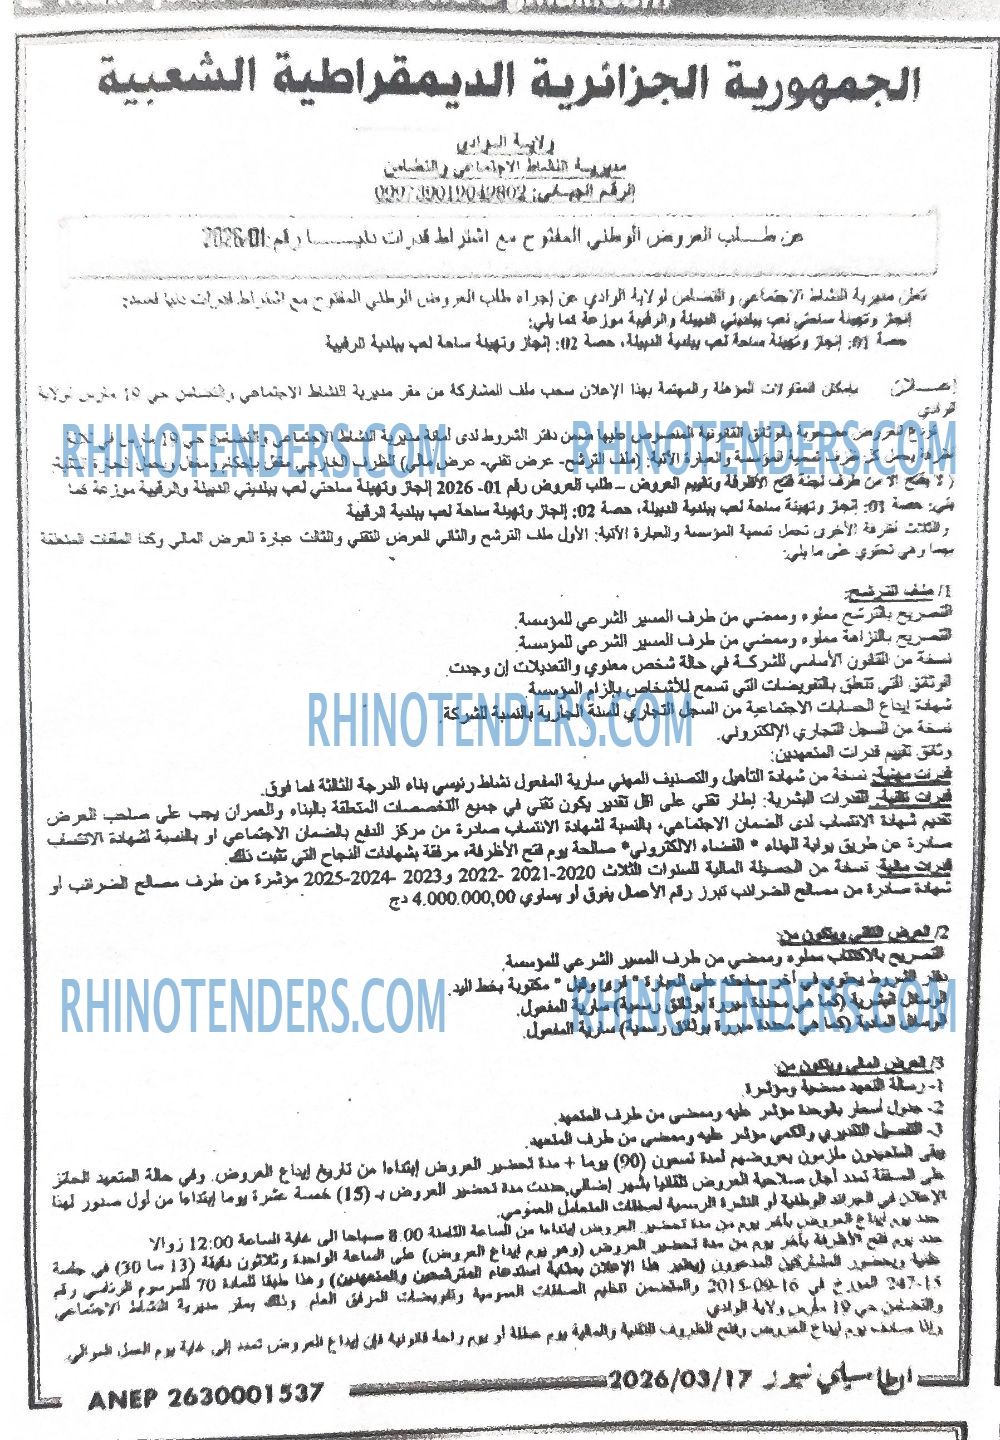 الجمهورية الجزائرية الديمقراطية الشعبية
ولاية الوادي
مديرية النشاط الاجتماعي والتضامن
الرقم الجبائي: 099739019049802
عن طلب العروض الوطني المفتوح مع اشتراط قدرات دنيا رقم: 2026/01
تعلن مديرية النشاط الاجتماعي والتضامن لولاية الوادي عن إجراء طلب العروض الوطني المفتوح مع اشتراط قدرات دنيا لصدد:
إنجاز وتهيئة ساحتي لعب ببلديتي الدبيلة والرقيبة موزعة كما يلي:
حصة 01: إنجاز وتهيئة ساحة لعب ببلدية الدبيلة، حصة 02: إنجاز وتهيئة ساحة لعب ببلدية الرقيبة
بإمكان المقاولات المؤهلة والمهتمة بهذا الإعلان سحب ملف المشاركة من مقر مديرية النشاط الاجتماعي والتضامن حي 19 مارس لولاية
الوادي
RHINOTENDERS.COM RHINOTENDERS.COM
( لا يفتح إلا من طرف لجنة فتح الأظرفة وتقييم العروض – طلب العروض رقم 01- 2026 إنجاز وتهيئة ساحتي لعب ببلديتي الدبيلة والرقيبة موزعة كما
يلي: حصة 01: إنجاز وتهيئة ساحة لعب ببلدية الدبيلة، حصة 02: إنجاز وتهيئة ساحة لعب ببلدية الرقيبة
والثلاث أظرفة الأخرى تحمل تسمية المؤسسة والعبارة الآتية: الأول ملف الترشح والثاني للعرض التقني والثالث عبارة العرض المالي وكذا الملفات المتعلقة
بهما وهي تحتوي على ما يلي:
1/ ملف الترشح:
التصريح بالترشح مملوء وممضي من طرف المسير الشرعي للمؤسسة.
التصريح بالنزاهة مملوء وممضي من طرف المسير الشرعي للمؤسسة.
نسخة من القانون الأساسي للشركة في حالة شخص معنوي والتعديلات إن وجدت.
الوثائق التي تتعلق بالتفويضات التي تسمح للأشخاص بإلزام المؤسسة.
شهادة إيداع الحسابات الاجتماعية من السجل التجاري للسنة الجارية بالنسبة للشركة.
RHINOTENDERS.COM
نسخة من السجل التجاري الإلكتروني.
وثائق تقييم قدرات المتعهدين:
قدرات مهنية: نسخة من شهادة التأهيل والتصنيف المهني سارية المفعول نشاط رئيسي بناء الدرجة الثالثة فما فوق.
قدرات تقنية: القدرات البشرية: إطار تقني على أقل تقدير يكون تقني في جميع التخصصات المتعلقة بالبناء والعمران يجب على صاحب العرض
تقديم شهادة الانتساب لدى الضمان الاجتماعي، بالنسبة لشهادة الانتساب صادرة من مركز الدفع بالضمان الاجتماعي او بالنسبة لشهادة الانتساب
صادرة عن طريق بوابة الهناء " الفضاء الالكتروني" صالحة يوم فتح الأظرفة، مرفقة بشهادات النجاح التي تثبت ذلك.
قدرات مالية: نسخة من الحصيلة المالية للسنوات الثلاث 2020-2021 -2022 و2023 -2024-2025 مؤشرة من طرف مصالح الضرائب أو
شهادة صادرة من مصالح الضرائب تبرز رقم الأعمال يفوق أو يساوي 4.000.000,00 دج
2/ العرض التقني ويتكون من:
التصريح بالاكتتاب مملوء وممضي من طرف المسير الشرعي للمؤسسة.
دفتر الشروط يحتوي في آخر صفحته على العبارة " قرئ وقبل " مكتوبة بخط اليد.
الوسائل البشرية (كما هي محددة مبررة بوثائق رسمية) سارية المفعول.
RHINOTENDERS.COM RHINOTENDERS.COM
الوسائل المادية (كما هي محددة مبررة بوثائق رسمية) سارية المفعول.
3/ العرض المالي ويتكون من:
1- رسالة التعهد ممضية ومؤشرة.
2- جدول أسعار بالوحدة مؤشر عليه وممضي من طرف المتعهد.
3- التفصيل التقديري والكمي مؤشر عليه وممضي من طرف المتعهد.
يبقى المتعهدون ملزمون بعروضهم لمدة تسعون (90) يوما + مدة تحضير العروض إبتداءا من تاريخ إيداع العروض. وفي حالة المتعهد الحائز
على الصفقة تمدد آجال صلاحية العروض تلقائيا بشهر إضافي حددت مدة تحضير العروض بـ (15) خمسة عشرة يوما إبتداءا من أول صدور لهذا
الإعلان في الجرائد الوطنية أو النشرة الرسمية لصفقات المتعامل العمومي.
حدد يوم إيداع العروض بآخر يوم من مدة تحضير العروض إبتداءا من الساعة الثامنة 8:00 صباحا الى غاية الساعة 12:00 زوالا
حدد يوم فتح الأظرفة بآخر يوم من مدة تحضير العروض (وهو يوم إيداع العروض) على الساعة الواحدة وثلاثون دقيقة (13 سا 30) في جلسة
علنية وبحضور المشاركين المدعوون (يعتبر هذا الإعلان بمثابة استدعاء للمترشحين والمتعهدين) وهذا طبقا للمادة 70 للمرسوم الرئاسي رقم
15-247 المؤرخ في 16-09-2015 والمتضمن تنظيم الصفقات العمومية وتفويضات المرفق العام وذلك بمقر مديرية النشاط الاجتماعي
والتضامن حي 19 مارس ولاية الوادي
وإذا صادف يوم إيداع العروض وفتح الظروف التقنية والمالية يوم عطلة أو يوم راحة قانونية فإن إيداع العروض تمدد إلى غاية يوم العمل الموالي.
2026/03/17
ANEP 2630001537